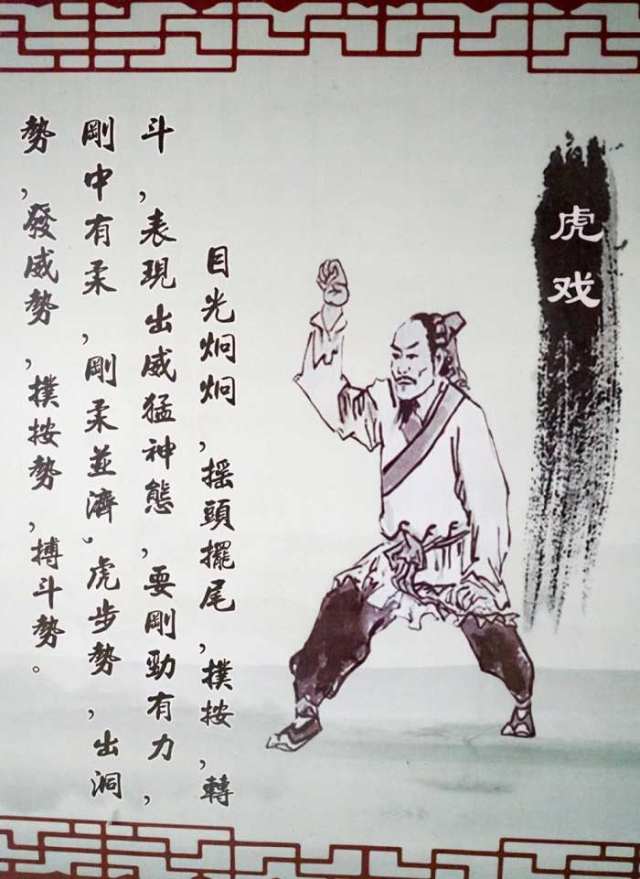 虎戏
目光炯炯,摇頭擺尾,撲按,轉
斗,表現出威猛神態,要剛勁有力,
剛中有柔,剛柔並濟,虎步勢,出洞
勢,發威勢,撲按勢,搏斗勢。